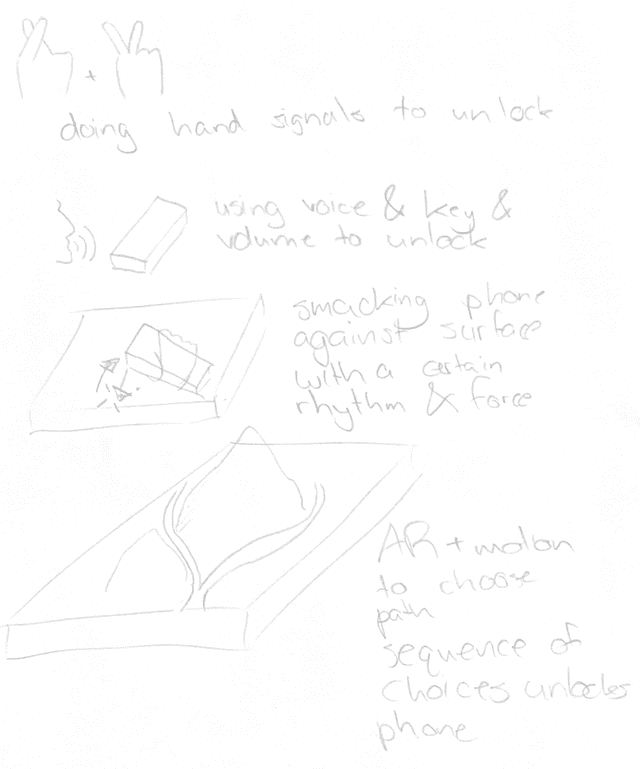 +
doing hand signals to unlock
using voice & key &
volume to unlock
smacking phone
against surface
with a certain
rhythm & force
AR + motion
to choose
path
sequence of
choices unlocks
phone